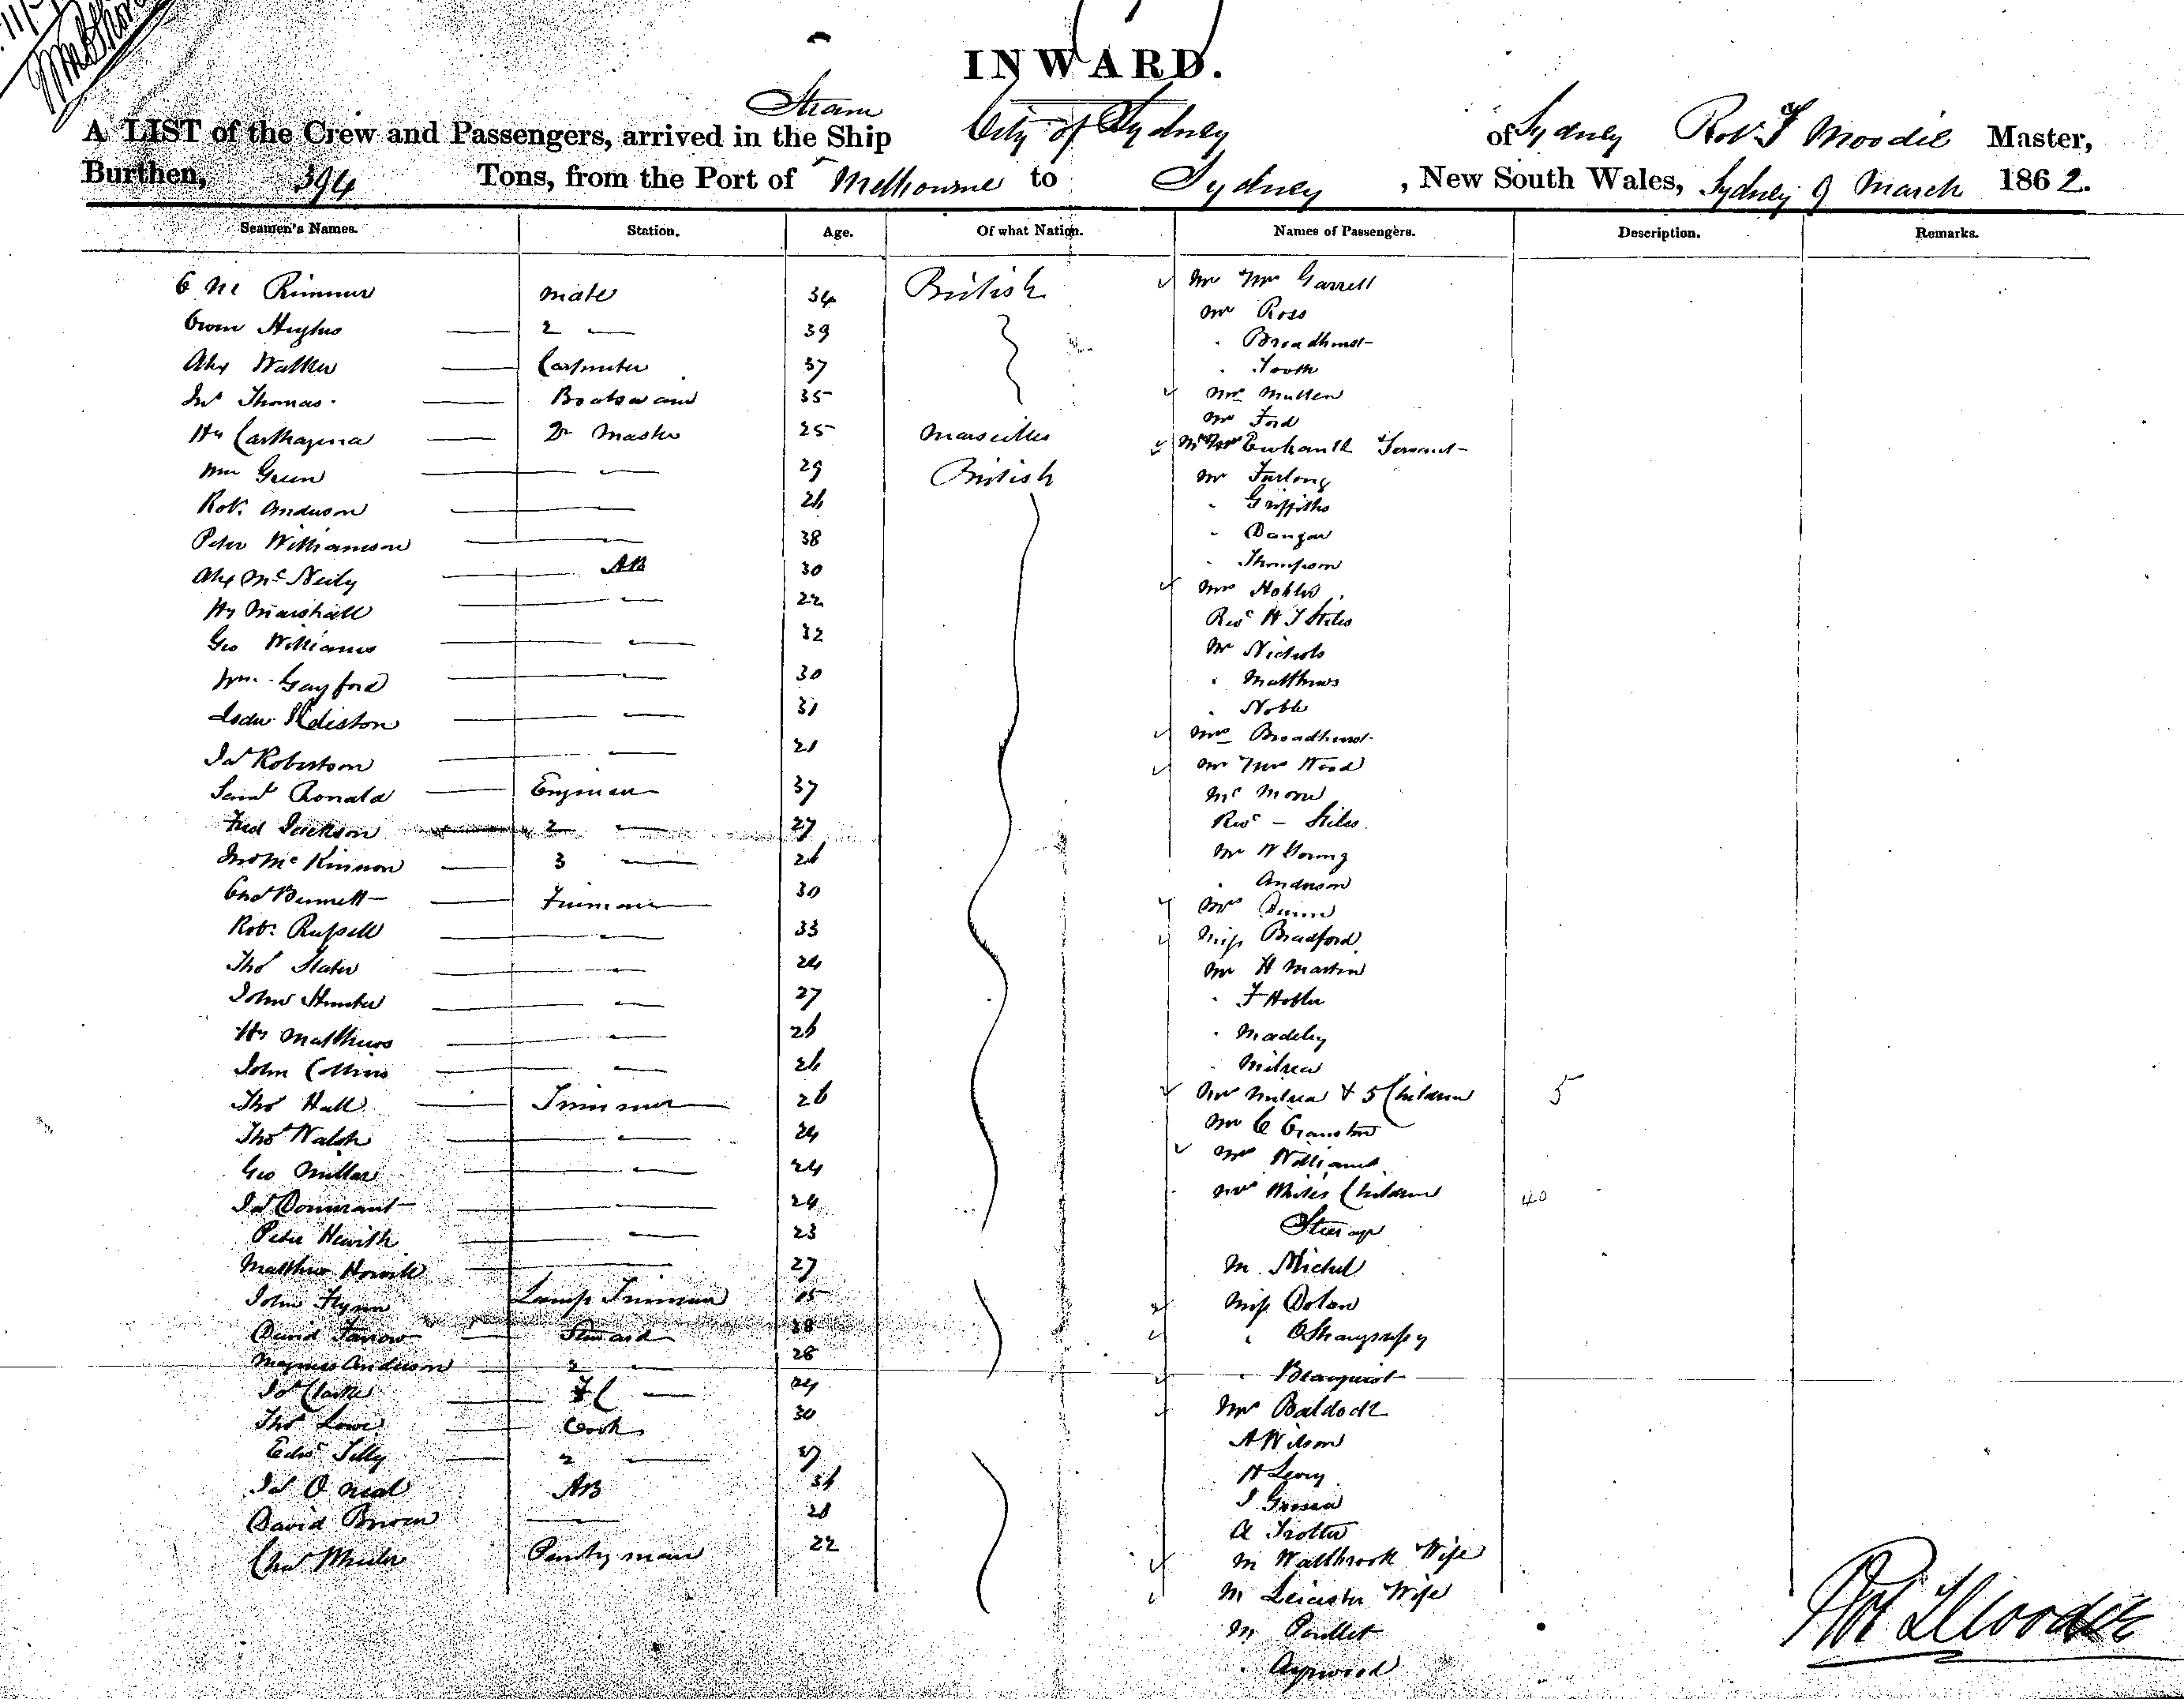 INWARD.
Steam
A LIST of the Crew and Passengers, arrived in the Ship City of Sydney of Sydney Robt T Moodie Master,
Burthen, 394 Tons, from the Port of Melbourne to Sydney , New South Wales, Sydney 9 March 1862.
Seamen's Names. Station. Age. Of what Nation. Names of Passengers. Description. Remarks.
Rimmer mate 34 British Mr Mrs Garrell
Owen Hughes 2 — 39 Mr Ross
Alex Walker Carpenter 37 " Broadhurst
Jno Thomas Boatswain 35 " Tooth
Mrs Mullen
Mr Ford
Hy Carthagena Qr Master 25 Marseilles Mr Mrs Ewbank Servant
Wm Green — 29 British Mr Furlong
Robt Anderson — 26 " Griffiths
Peter Williamson — 38 " Dangar
Alex McNeily AB 30 " Thompson
Hy Marshall — 22 Mrs Hobler
Geo Williams — 32 Revd H T Stiles
Wm Gayford — 30 Mr Nichols
— 31 " Matthews
" Noble
Jas Robertson — 21 Mrs Broadhurst
Saml Ronald Engineer 37 Mr Mrs Wood
Fred Jackson 2 — 27 Mr Moore
Jno McKinnon 3 — 26 Revd — Stiles
Chas Bennett Fireman 30 Mr W Young
Robt Russell — 33 " Anderson
Thos Slater — 24 Mrs Dunn
John Hunter — 27 Miss Bradford
Hy Matthews — 26 Mr H Martin
John Collins — 26 " F Hobler
Thos Hall Trimmer 26 " Madeley
Thos Walsh — 24 " Milnea
Geo Millar — 24 Mrs Milnea & 5 Children 5
Jas Dommant — 24 Mr C Cranston
Peter Hewith — 23 Mrs Williams
Matthew Howith — 27 Mrs Miles Children 40
John Flynn Lamp Trimmer 15 Steerage
David Farrow Steward 38 M Michel
Magnus Anderson 2 — 28 Miss Dolan
Jas Clarke FC — 24 " OShaugnessy
Thos Lowe Cook 30 " Beauquist
Edwd Tilly 2 — 27 Mrs Baldock
Jas O Neal AB 36 A Wilson
David Brown — 28 H Levy
Chas Wheeler Pantry man 22 J
A Trotter
M Wallbrook Wife
M Leicester Wife
M Paullet
" Aypwood
Robt T Moodie